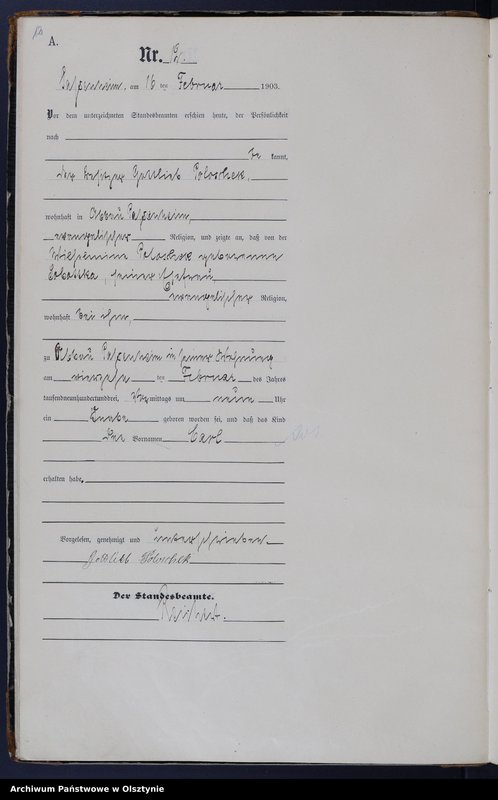 A.
Nr. 12.
am 16 ten Februar 1903.
Vor dem unterzeichneten Standesbeamten erschien heute, der Persönlichkeit
nach
be kannt,
der Besitzer Gottlieb Poloschek,
wohnhaft in Abbau
evangelischer Religion, und zeigte an, daß von der
Wilhelmine Poloschek geborenen
Sobottka, seiner Ehefrau
evangelischer Religion,
wohnhaft bei ihm,
zu Abbau in seiner Wohnung
am vierzehn ten Februar des Jahres
tausendneunhundertunddrei, Vor mittags um neun Uhr
ein Knabe geboren worden sei, und daß das Kind
den Vornamen Carl
erhalten habe.
Vorgelesen, genehmigt und unterschrieben
Gottlieb Poloschek
Der Standesbeamte.
Archiwum Państwowe w Olsztynie